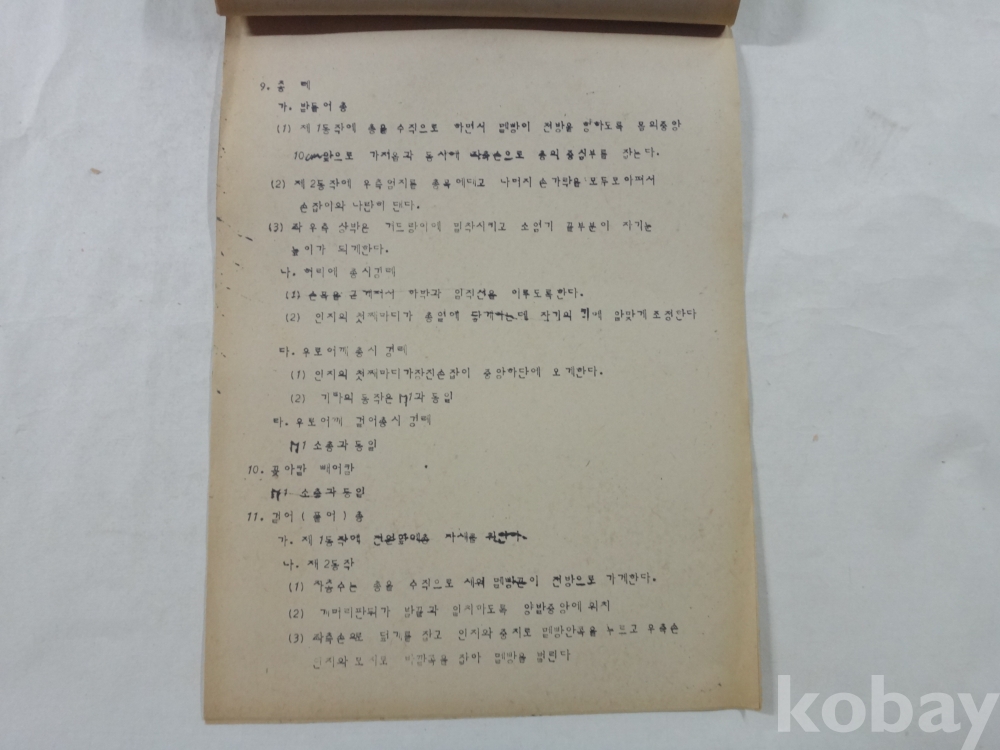 9. 총 례
가. 받들어 총
(1) 제 1동작에 총을 수직으로 하면서 멜방이 전방을 향하도록 몸의중앙
10cm앞으로 가져옴과 동시에 좌측손으로 총의 중심부를 잡는다.
(2) 제 2동작에 우측엄지를 총목에대고 나머지 손가락을 모두모아펴서
손잡이와 나란히 댄다.
(3) 좌우측 상박은 겨드랑이에 밀착시키고 소염기 끝부분이 자기눈
높이가 되게한다.
나. 허리에 총시경례
(1) 손목을 곧게펴서 하박과 일직선을 이루도록한다.
(2) 인지의 첫째마디가 총열에 자기의 키에 알맞게 조정한다
다. 우로어깨 총시 경례
(1) 인지의 첫째마디가 손잡이 중앙하단에 오게한다.
(2) 기타의 동작은 M1과 동일
라. 우로어깨 걸어총시 경례
M1 소총과 동일
10. 꽂아칼 빼어칼
M1 소총과동일
11. 걸어 ( 풀어 ) 총
가. 제 1동작에 자세를 취한다.
나. 제 2동작
(1) 좌총수는 총을 수직으로 세워 멜방끈이 전방으로 가게한다.
(2) 개머리판뒤가 발끝과 일치하도록 양발중앙에 위치
(3) 좌측손으로 덮개를 잡고 인지와 중지로 멜방안쪽을 누르고 우측손
인지와 모지로 바깥쪽을 잡아 멜방을 벌린다
kobay